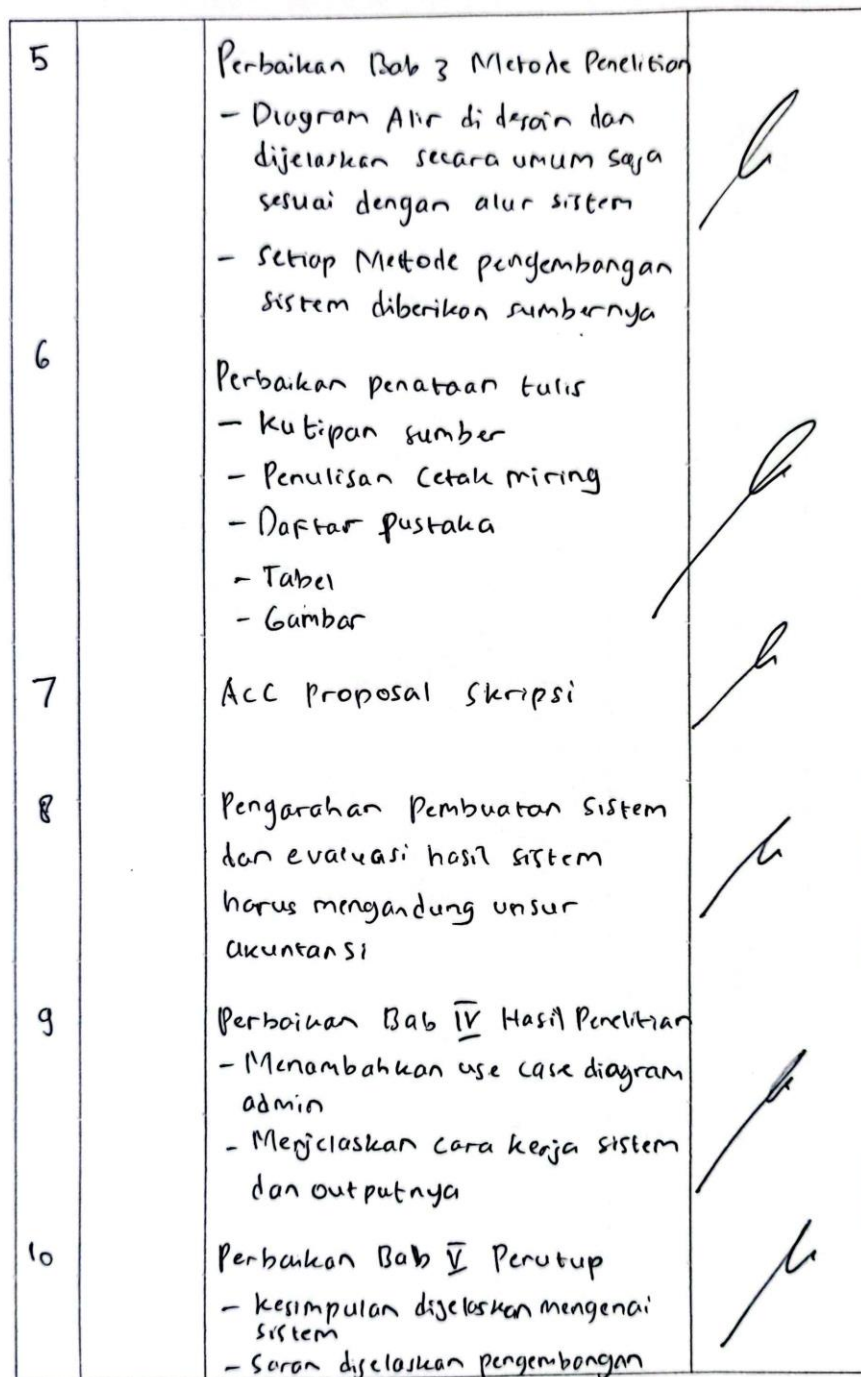 5
Perbaikan Bab 3 Metode Penelitian
- Diagram Alir di desain dan
dijelaskan secara umum saja
sesuai dengan alur sistem
- Setiap Mettode pengembangan
sistem diberikan sumbernya
6
Perbaikan penataan tulis
- Kutipan sumber
- Penulisan Cetak miring
- Daftar pustaka
- Tabel
- Gambar
7
Acc Proposal Skripsi
8
Pengarahan Pembuatan Sistem
dan evaluasi hasil sistem
harus mengandung unsur
akuntansi
9
Perbaikan Bab IV Hasil Penelitian
- Menambahkan use case diagram
admin
- Menjelaskan cara kerja sistem
dan outputnya
10
Perbaikan Bab V Penutup
- Kesimpulan dijelaskan mengenai
sistem
- Saran dijelaskan pengembangan